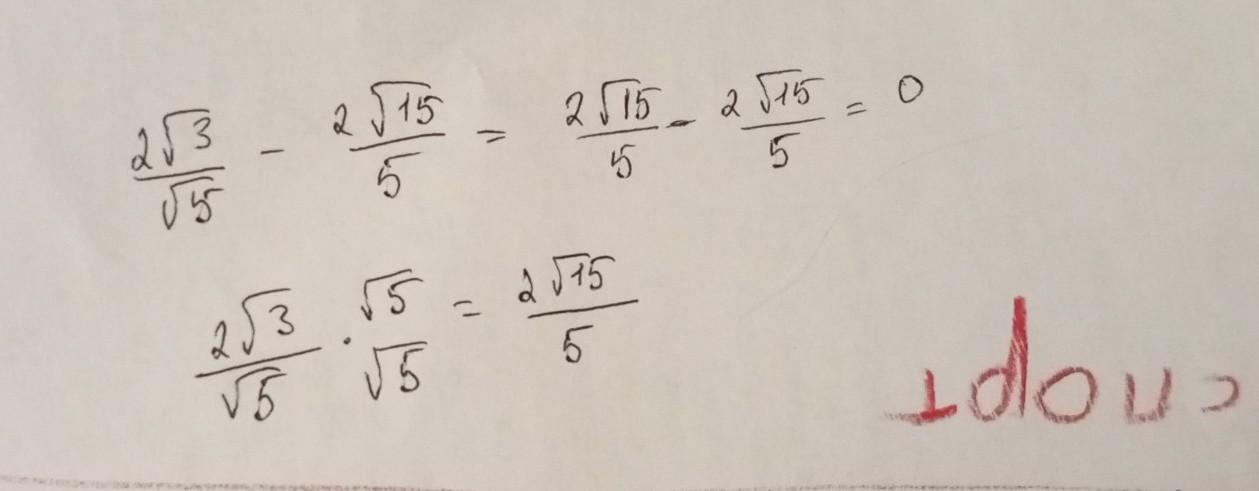 2√3/√5 - 2√15/5 = 2√15/5 - 2√15/5 = 0
2√3/√5 · √5/√5 = 2√15/5
спорт